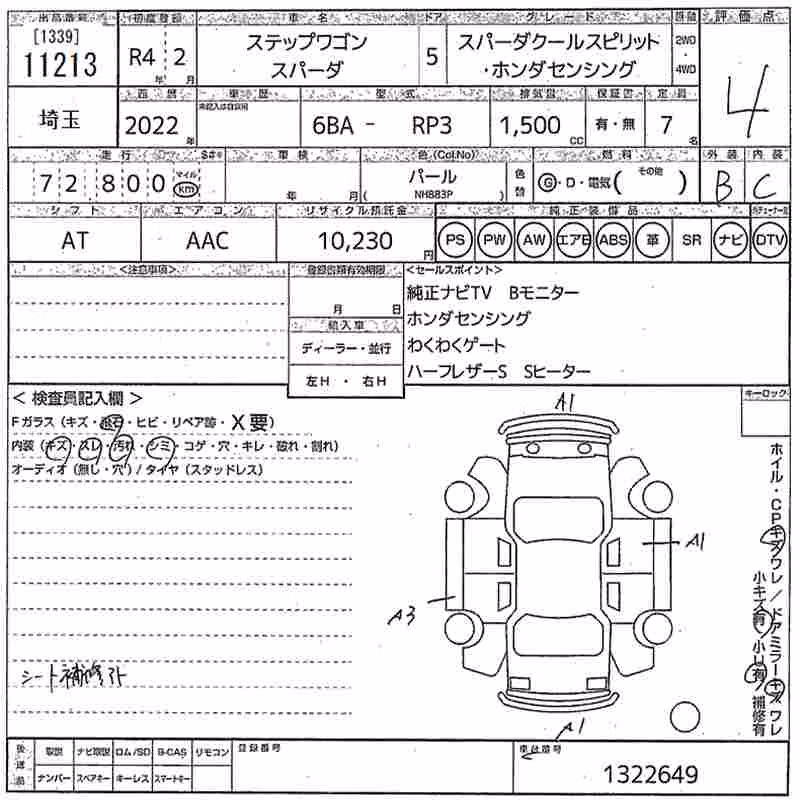 出品番号 初度登録 車名 ドア グレード 駆動 評価点
[1339]
11213 R4年 2月 ステップワゴン スパーダ 5 スパーダクールスピリット・ホンダセンシング 2WD・4WD 4
西暦 車歴 型式 排気量 保証書 定員
未記入は自家用
埼玉 2022年 6BA - RP3 1,500cc 有・無 7名
走行 S#® 車検 色(Col.No) 燃料 外装 内装
72 800 マイル km 年 月 パール 色替 G・D・電気( その他 ) B C
( NH883P )
シフト エアコン リサイクル預託金 純正装備品
AT AAC 10,230円 PS PW AW エアB ABS 革 SR ナビ DTV
<注意事項> 登録書類有効期限 <セールスポイント>
月 日
純正ナビTV Bモニター
ホンダセンシング
輸入車
ディーラー・並行
わくわくゲート
左H・右H
ハーフレザーS Sヒーター
< 検査員記入欄 >
キーロック
Fガラス(キズ・飛石・ヒビ・リペア跡・X要)
内装(キズ・スレ・汚れ・シミ・コゲ・穴・キレ・破れ・割れ)
オーディオ(無し・穴)/タイヤ(スタッドレス)
A1
A1
A3
A1
ホイル・CPキズワレ/ドアミラーキズワレ
小キズ有/小U有/補修有
シート補修外
後送品 取説 ナビ取説 ロム/SD B-CAS リモコン 登録番号 車台番号
ナンバー スペアキー キーレス スマートキー
1322649